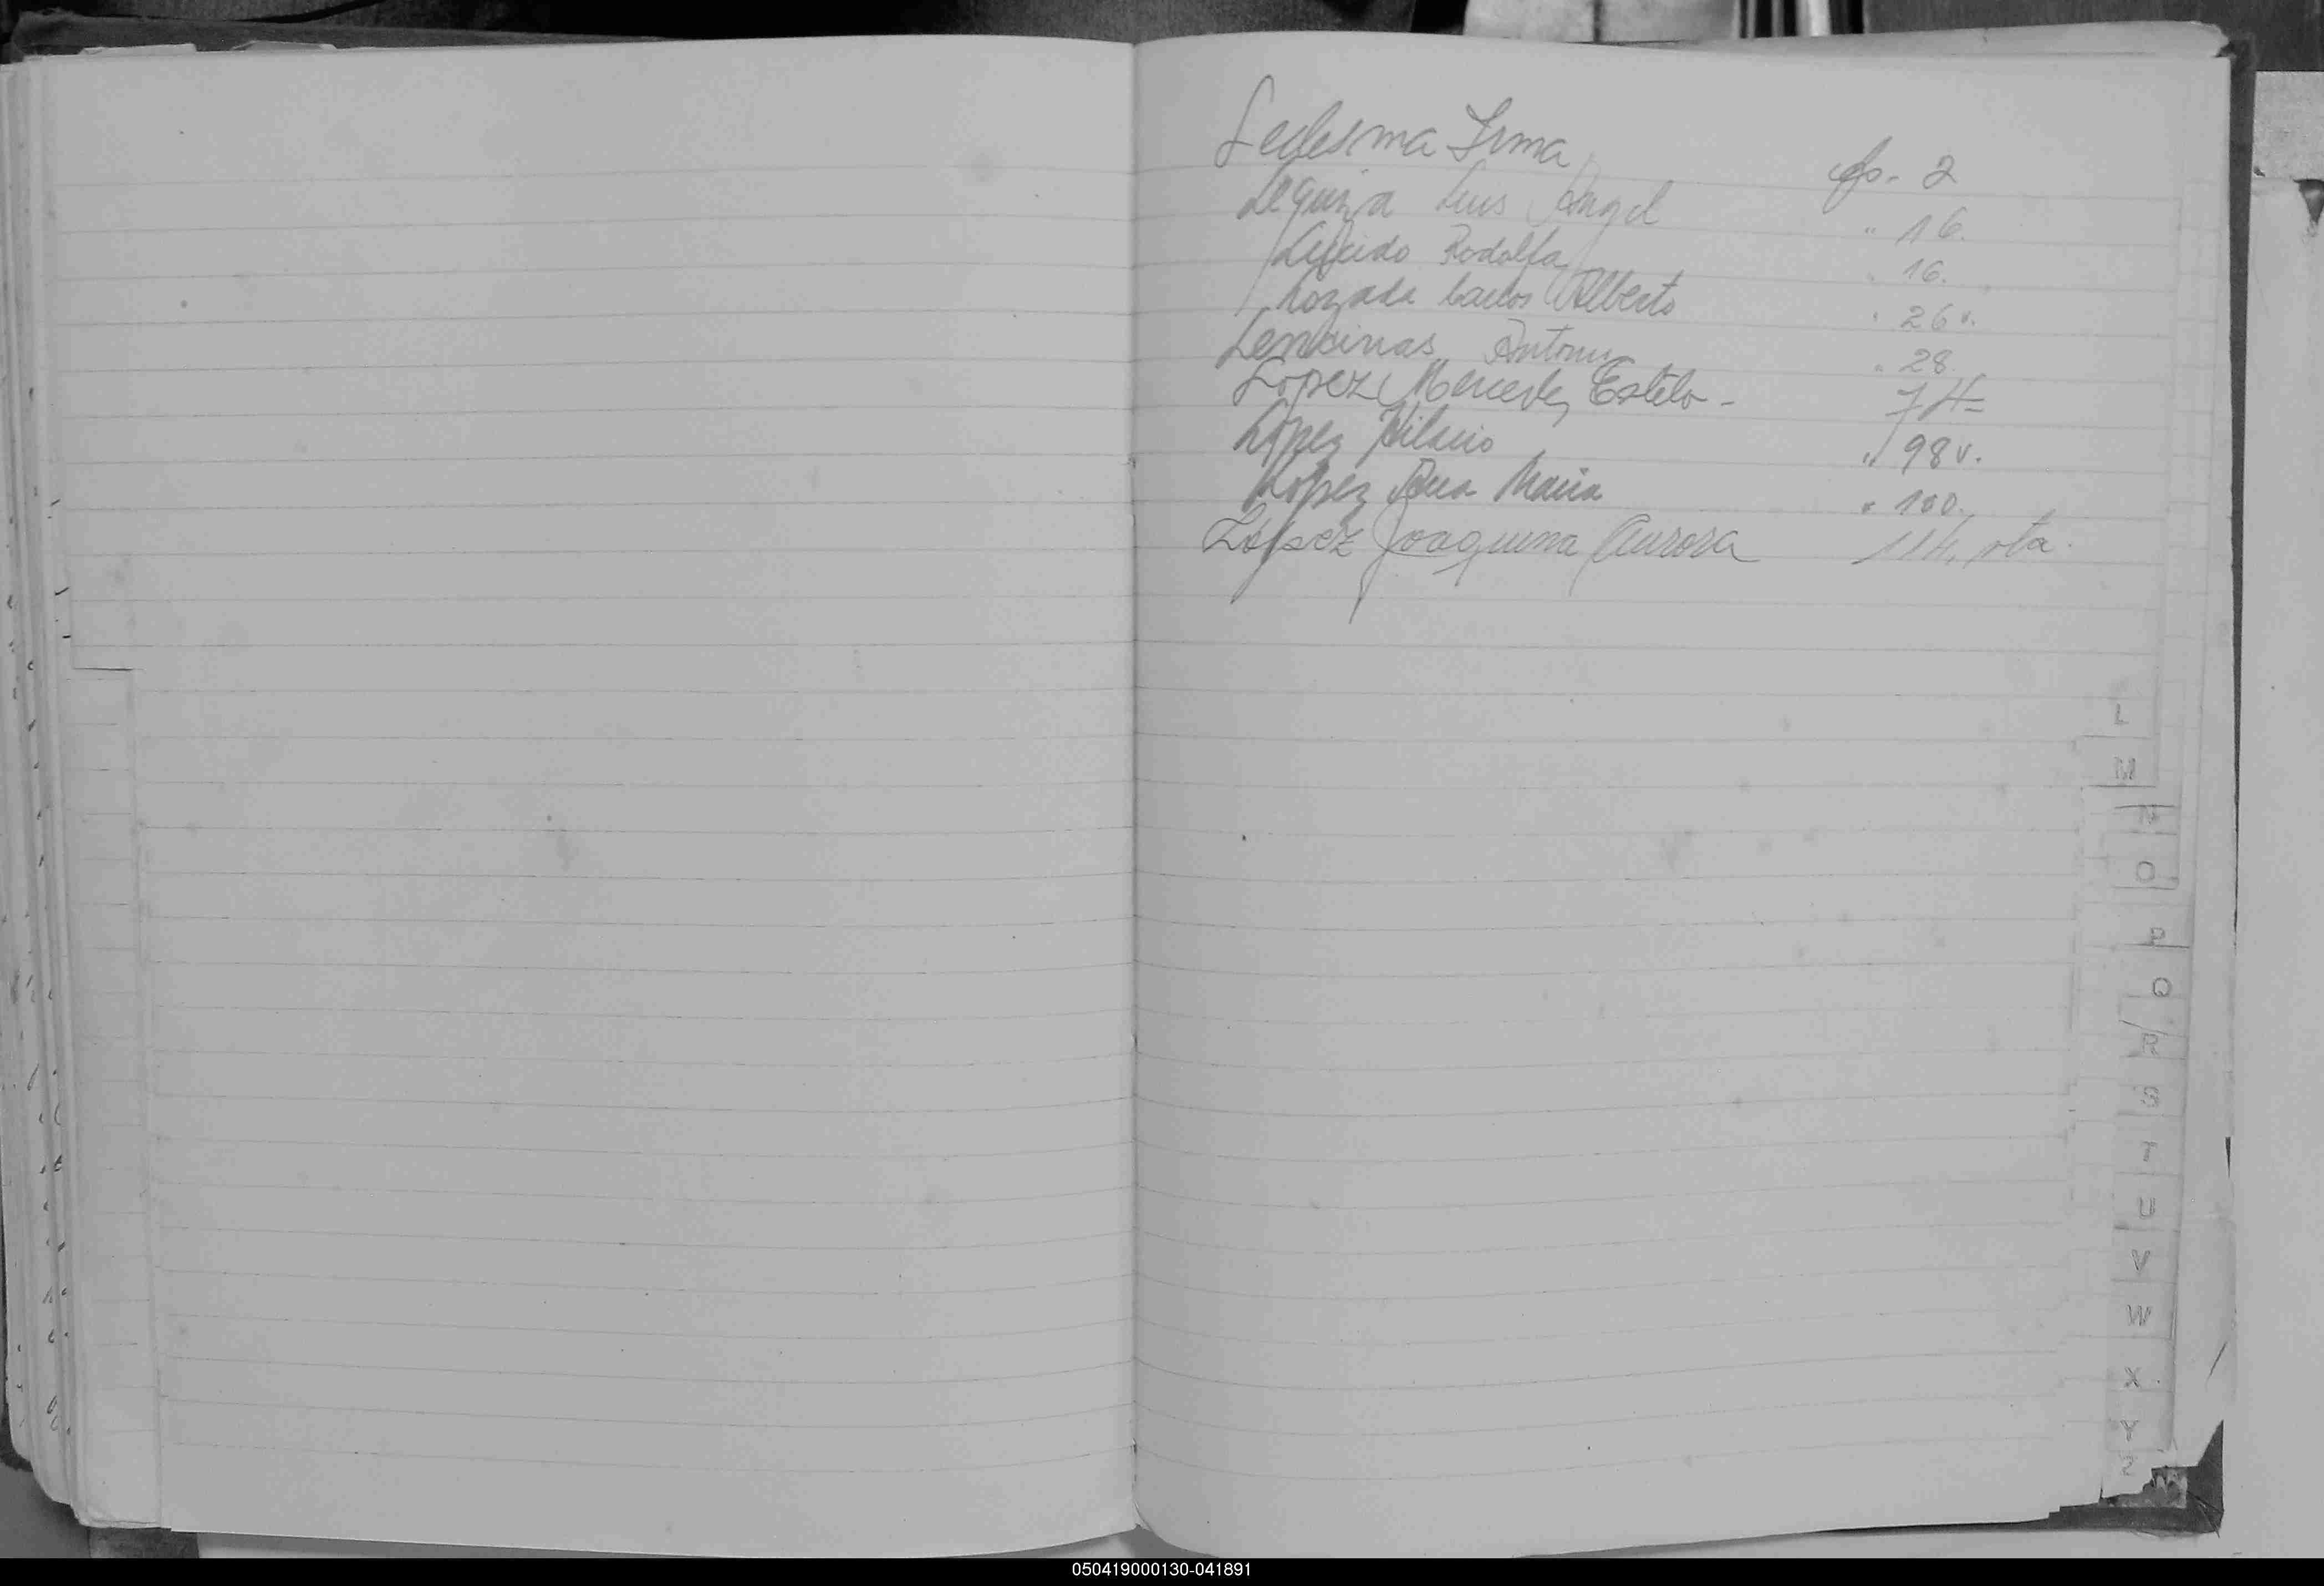 Ledesma Irma fs. 2
Leguiza Luis Angel " 16.
Rodolfa " 16.
Lozada Carlos Alberto " 26 v.
Lencinas Antonio " 28
Lopez Mercedes Estela - 74=
López Hilario " 98 v.
López Ana Maria " 100.
López Joaquina Aurora 114 vta.
L
M
N
O
P
Q
R
S
T
U
V
W
X
Y
Z
050419000130-041891